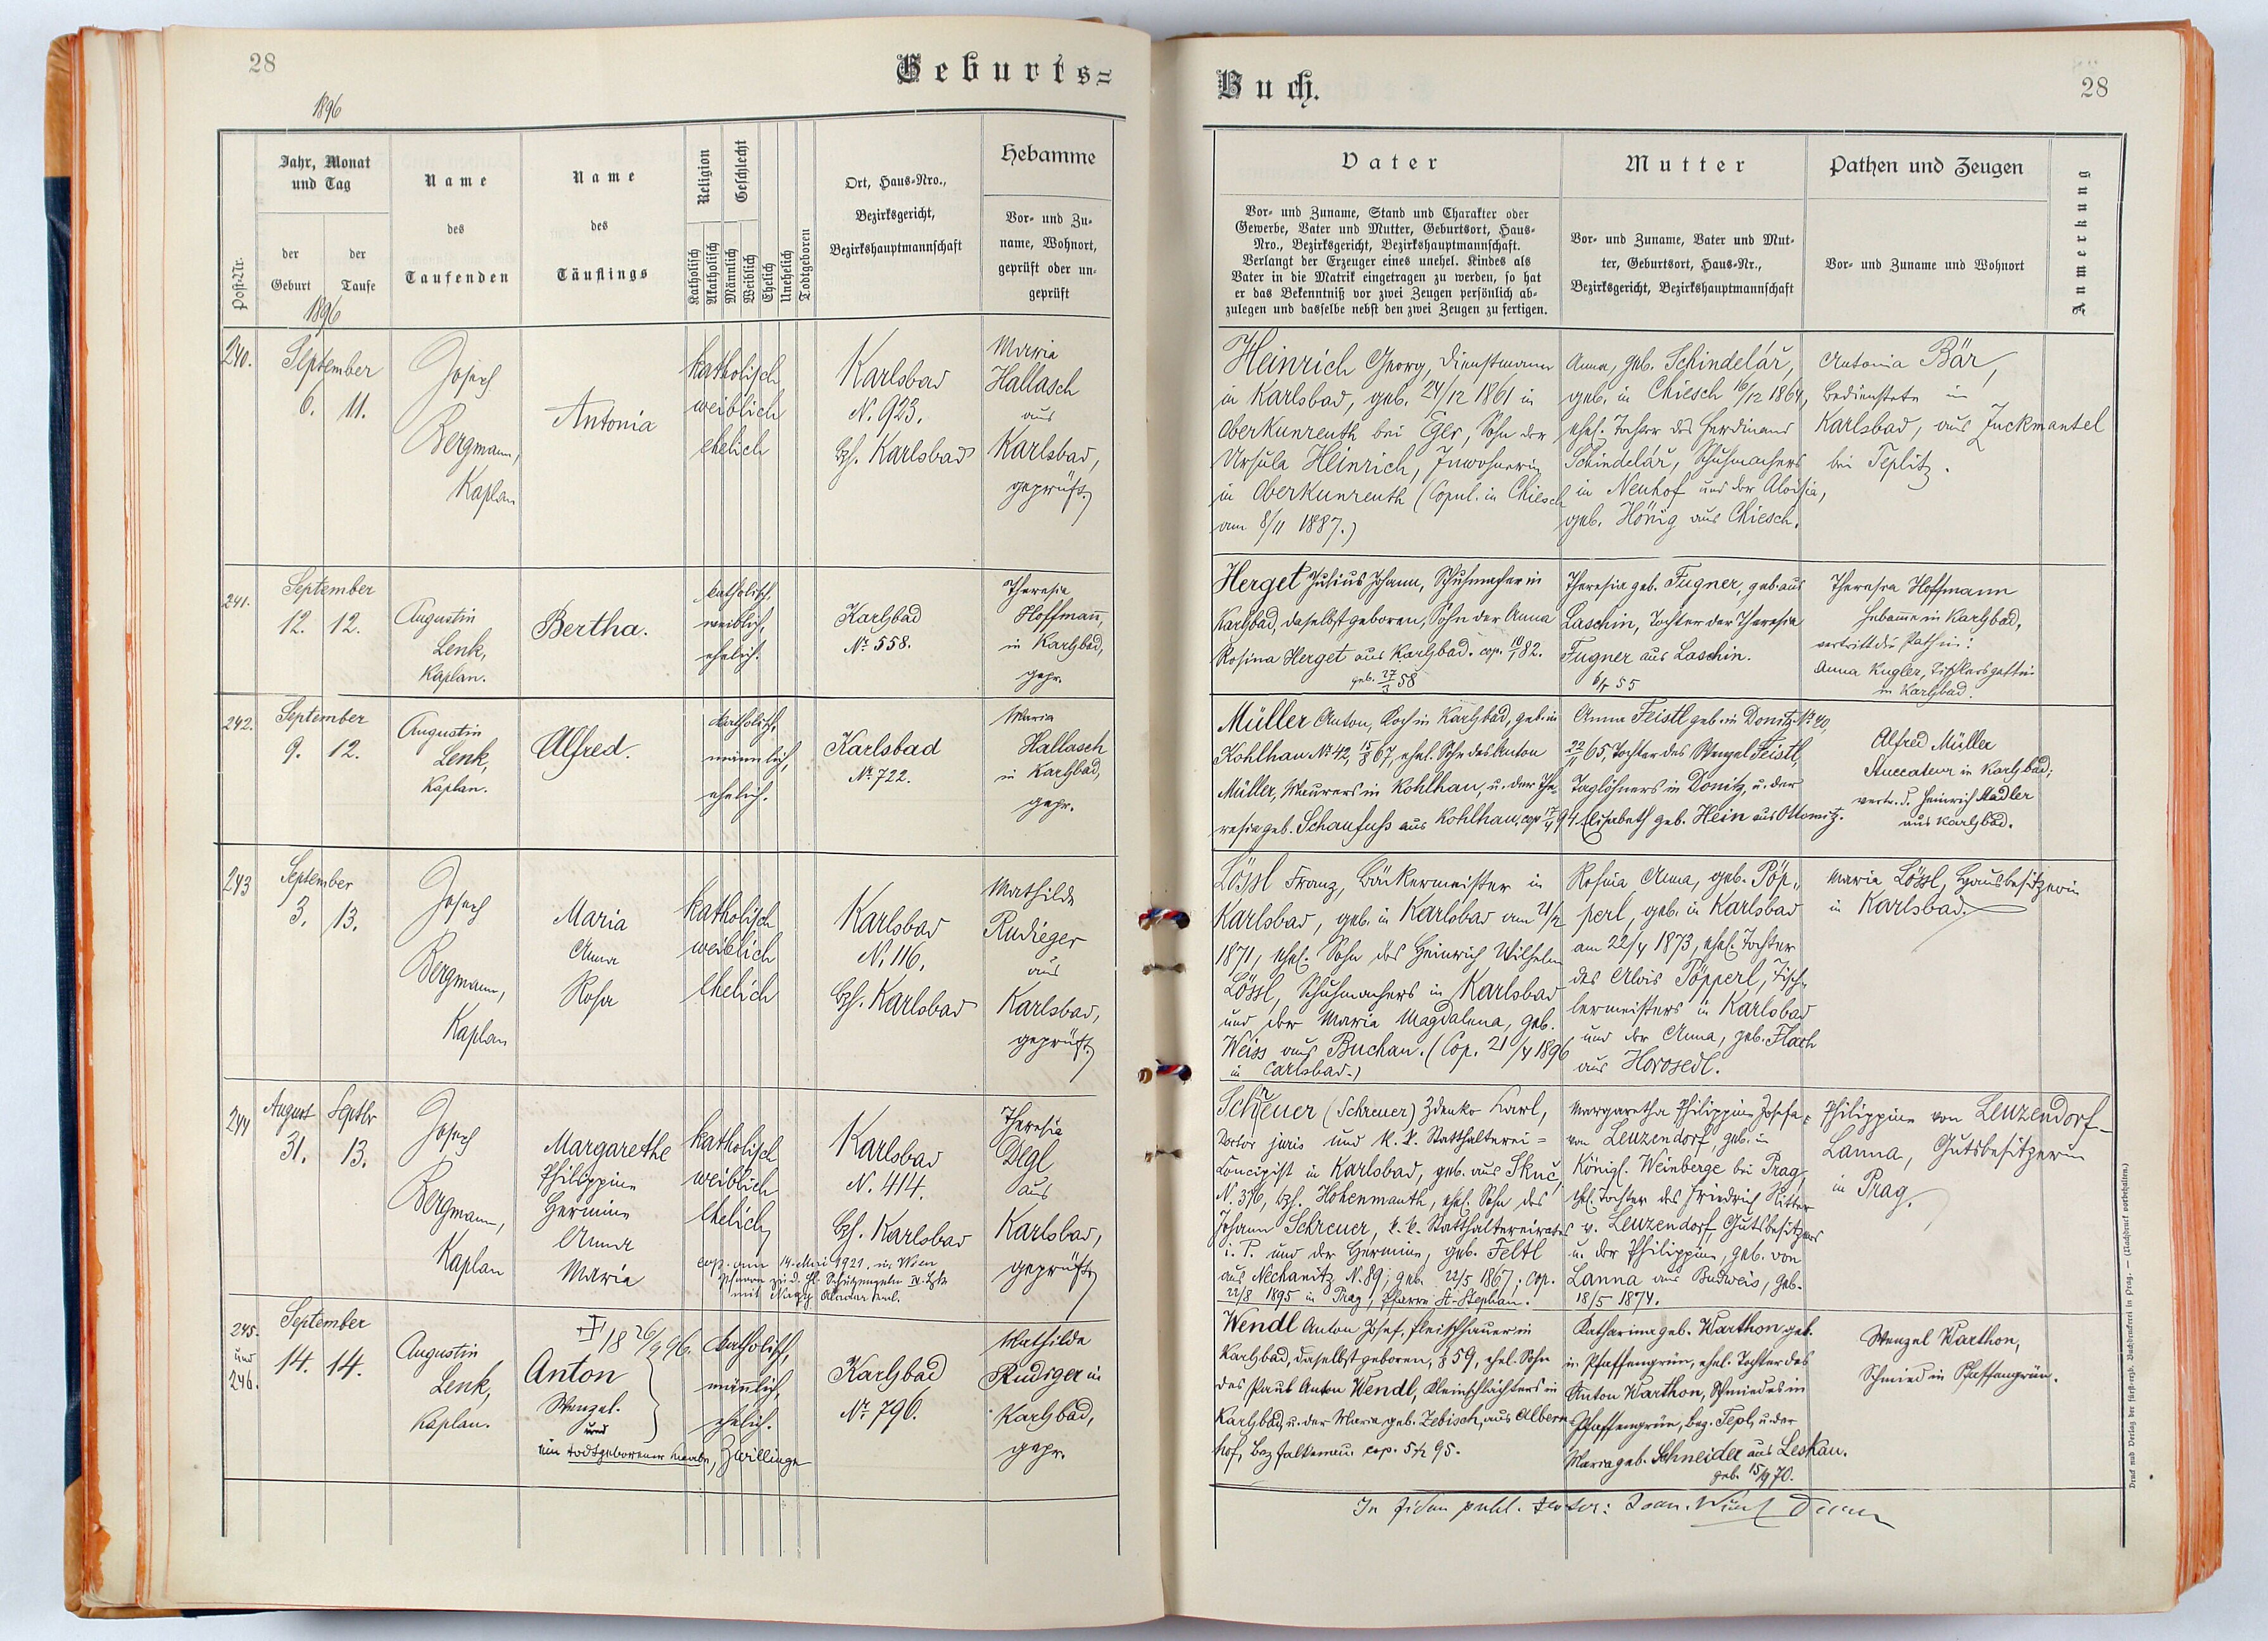 28
Geburts=
1896
Jahr, Monat
und Tag
der
Geburt
der
Taufe
1896
Post-Nr.
Name
des
Taufenden
Name
des
Täuflings
Religion
Geschlecht
Katholisch
Akatholisch
Männlich
Weiblich
Ehelich
Unehelich
Todtgeboren
Ort, Haus-Nro.,
Bezirksgericht,
Bezirkshauptmannschaft
Hebamme
Vor- und Zu-
name, Wohnort,
geprüft oder un-
geprüft
240.
September
6. 11.
Josef
Bergmann,
Kaplan
Antonia
katholisch
weiblich
ehelich
Karlsbad
N. 923.
Bzh. Karlsbad
Maria
Hallasch
aus
Karlsbad,
geprüft
241.
September
12. 12.
Augustin
Lenk,
Kaplan.
Bertha.
katholisch,
weiblich,
ehelich.
Karlsbad
No. 558.
Theresia
Hoffmann,
in Karlsbad,
gepr.
242.
September
9. 12.
Augustin
Lenk,
Kaplan.
Alfred.
katholisch,
männlich,
ehelich.
Karlsbad
No. 722.
Maria
Hallasch
in Karlsbad,
gepr.
243
September
3. 13.
Josef
Bergmann,
Kaplan
Maria
Anna
Rosa
katholisch
weiblich
ehelich
Karlsbad
N. 116.
Bzh. Karlsbad
Mathilde
Rudieger
aus
Karlsbad,
geprüft
244
August Septbr
31. 13.
Josef
Bergmann,
Kaplan
Margarethe
Philippine
Hermine
Anna
Maria
katholisch
weiblich
ehelich
cop. am 14. Mai 1921. in Wien
Pfarre zu d. hl. Schutzengeln IV. Bzk
mit Nagy
Karlsbad
N. 414.
Bzh. Karlsbad
Theresia
Degl
aus
Karlsbad,
geprüft
245.
und
246.
September
14. 14.
Augustin
Lenk,
Kaplan.
† 18 26/9 96.
Anton
Wenzel.
und
ein todtgeborener Knabe, Zwillinge
katholisch,
männlich,
ehelich.
Karlsbad
No. 796.
Mathilde
Rudiger in
Karlsbad,
gepr.
Buch.
28
Vater
Vor- und Zuname, Stand und Charakter oder
Gewerbe, Vater und Mutter, Geburtsort, Haus-
Nro., Bezirksgericht, Bezirkshauptmannschaft.
Verlangt der Erzeuger eines unehel. Kindes als
Vater in die Matrik eingetragen zu werden, so hat
er das Bekenntniß vor zwei Zeugen persönlich ab-
zulegen und dasselbe nebst den zwei Zeugen zu fertigen.
Mutter
Vor- und Zuname, Vater und Mut-
ter, Geburtsort, Haus-Nr.,
Bezirksgericht, Bezirkshauptmannschaft
Pathen und Zeugen
Vor- und Zuname und Wohnort
Anmerkung
Heinrich Georg, Dienstmann
in Karlsbad, geb. 24/12 1861 in
Oberkunreuth bei Eger, Sohn der
Ursula Heinrich, Inwohnerin
in Oberkunreuth (Copul. in Chiesch
am 8/11 1887.)
Anna, geb. Schindelář,
geb. in Chiesch 16/12 1864,
ehel. Tochter des Ferdinand
Schindelář, Schuhmachers
in Neuhof und der Aloisia,
geb. Hönig aus Chiesch.
Antonia Bär,
Bedienstete in
Karlsbad, aus Zuckmantel
bei Teplitz.
Herget Julius Johann, Schuhmacher in
Karlsbad, daselbst geboren, Sohn der Anna
Rosina Herget aus Karlsbad. cop. 10/1 82.
geb. 27/3 58
Theresia geb. Fugner, geb. aus
Laschin, Tochter der Theresia
Fugner aus Laschin.
55
Theresia Hoffmann
Hebamme in Karlsbad,
vertritt die Pathin:
Anna Kugler, Tischlersgattin
in Karlsbad.
Müller Anton, Koch in Karlsbad, geb. in
Kohlhau No 42, 15/8 67, ehel. Sohn des Anton
Müller, Maurers in Kohlhau, u. der The-
resia geb. Schaufuß aus Kohlhau, cop 17/4 94
Anna Feistl geb. in Donitz No. 40,
22/11 65, Tochter des Wenzel Feistl,
Taglöhners in Donitz, u. der
Elisabeth geb. Hein aus Ottowitz.
Alfred Müller
Stuccateur in Karlsbad;
vertr. d. Heinrich Madler
aus Karlsbad.
Lössl Franz, Bäckermeister in
Karlsbad, geb. in Karlsbad am 21/12
1871, ehel. Sohn des Heinrich Wilhelm
Lössl, Schuhmachers in Karlsbad
und der Maria Magdalena, geb.
Weiss aus Buchau. (Cop. 21/4 1896
in Carlsbad.)
Rosina Anna, geb. Pöp-
perl, geb. in Karlsbad
am 22/4 1873, ehel. Tochter
des Alois Pöpperl, Tisch-
lermeisters in Karlsbad
und der Anna, geb. Flach
aus Horosedl.
Maria Lössl, Hausbesitzerin
in Karlsbad.
Scheuer (Schreuer) Zdenko Karl,
Doctor juris und k. k. Statthalterei-
Concipist in Karlsbad, geb. aus Skuč,
N. 376, Bzh. Hohenmauth, ehel. Sohn des
Johann Schreuer, k. k. Statthaltereirates
i. P. und der Hermine, geb. Feltl
aus Nechanitz N. 89; geb. 22/5 1867; Cop.
22/8 1895 in Prag, Pfarre St. Stephan.
Margaretha Philippine Josefa
von Leuzendorf, geb. in
Königl. Weinberge bei Prag,
ehel. Tochter des Friedrich Ritter
v. Leuzendorf, Gutsbesitzers
u. der Philippine, geb. von
Lanna aus Budweis, geb.
18/5 1874.
Philippine von Leuzendorf-
Lanna, Gutsbesitzerin
in Prag.
Wendl Anton Josef, Fleischhauer in
Karlsbad, daselbst geboren, 59, ehel. Sohn
des Paul Anton Wendl, Kleinschlächters in
Karlsbad, u. der Maria geb. Zebisch, aus Albern-
hof, Bez. Falkenau. cop. 5/2 95.
Katharina geb. Warthon, geb.
in Pfaffengrün, ehel. Tochter des
Anton Warthon, Schmiedes in
Pfaffengrün, Bez. Tepl, u. der
Maria geb. Schneider aus Leskau.
geb. 15/9 70.
Wenzel Warthon,
Schmied in Pfaffengrün.
In fidem publ.
Druck und Verlag der fürst-erzb. Buchdruckerei in Prag. — (Nachdruck vorbehalten.)